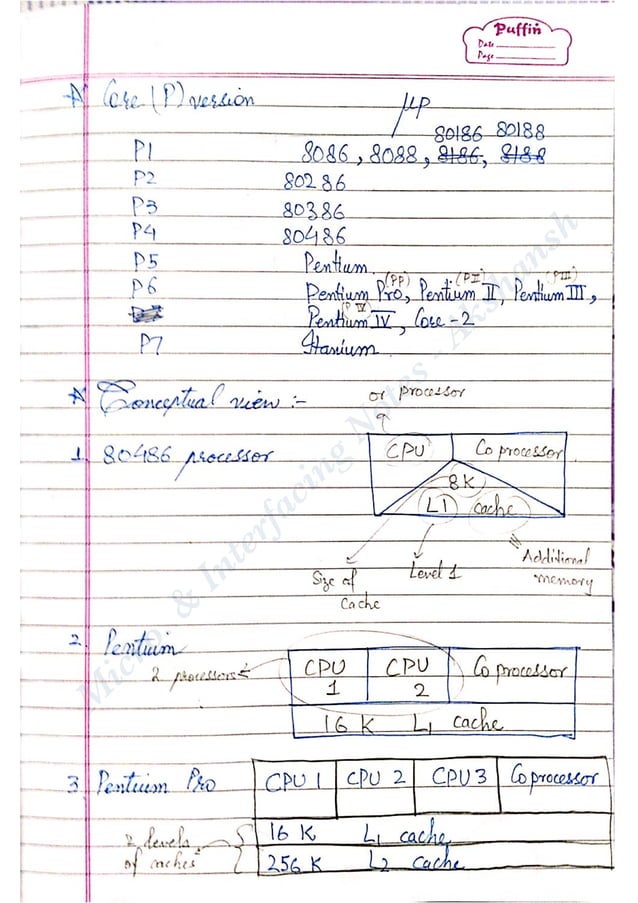 Puffin
Date
Page
Core (P) version
μp
80186 80188
P1 8086, 8088, 8186, 8188
P2 80286
P3 80386
P4 80486
P5 Pentium
P6 Pentium Pro, (PP) Pentium II, (PII) Pentium III, (PIII)
Pentium IV, (PIV) Core-2
P7 Itanium
Conceptual view :-
or processor
1. 80486 processor
CPU Coprocessor
8K
L1 cache
Size of Cache
Level 1
Additional memory
2. Pentium
2 processors
CPU 1 CPU 2 Coprocessor
16 K L1 cache
3. Pentium Pro
CPU 1 CPU 2 CPU 3 Coprocessor
2 levels of caches
16 K L1 cache
256 K L2 cache
Micro. & Interfacing Notes - Akshansh